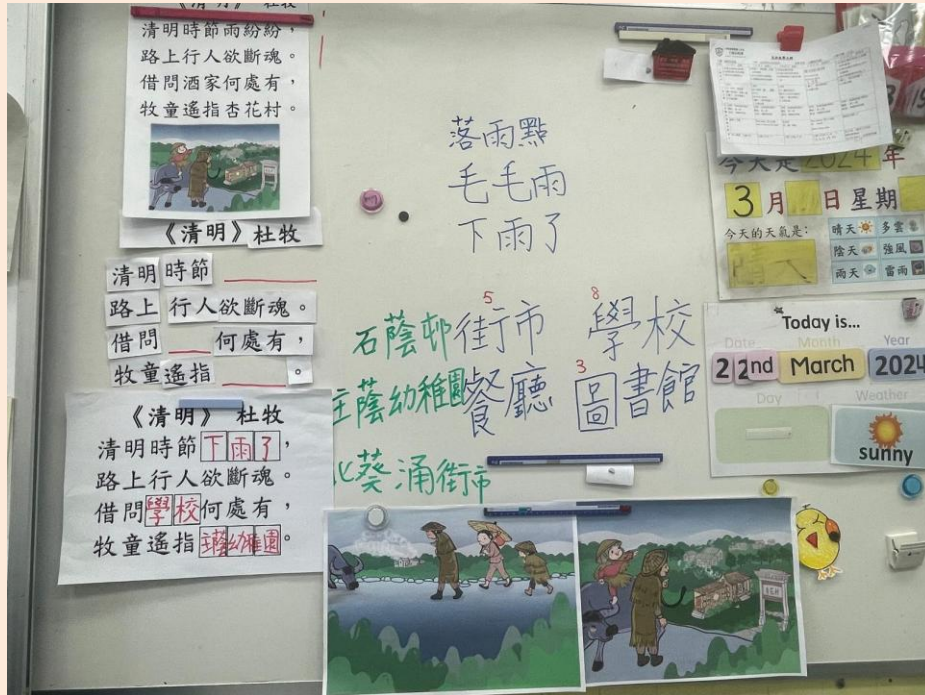 《清明》 杜牧
清明時節雨紛紛，
路上行人欲斷魂。
借問酒家何處有，
牧童遙指杏花村。
《清明》杜牧
清明時節
路上行人欲斷魂。
借問 何處有，
牧童遙指 。
《清明》 杜牧
清明時節下雨了，
路上行人欲斷魂。
借問學校何處有，
牧童遙指蔭幼稚園。
落雨點
毛毛雨
下雨了
5
8
石蔭邨街市 學校
3
蔭幼稚園餐廳 圖書館
葵涌街市
今天是2024年
3月 日星期
今天的天氣是：
晴天 多雲
陰天 強風
雨天 雷雨
Today is...
Date Month Year
22nd March 2024
Day Weather
sunny